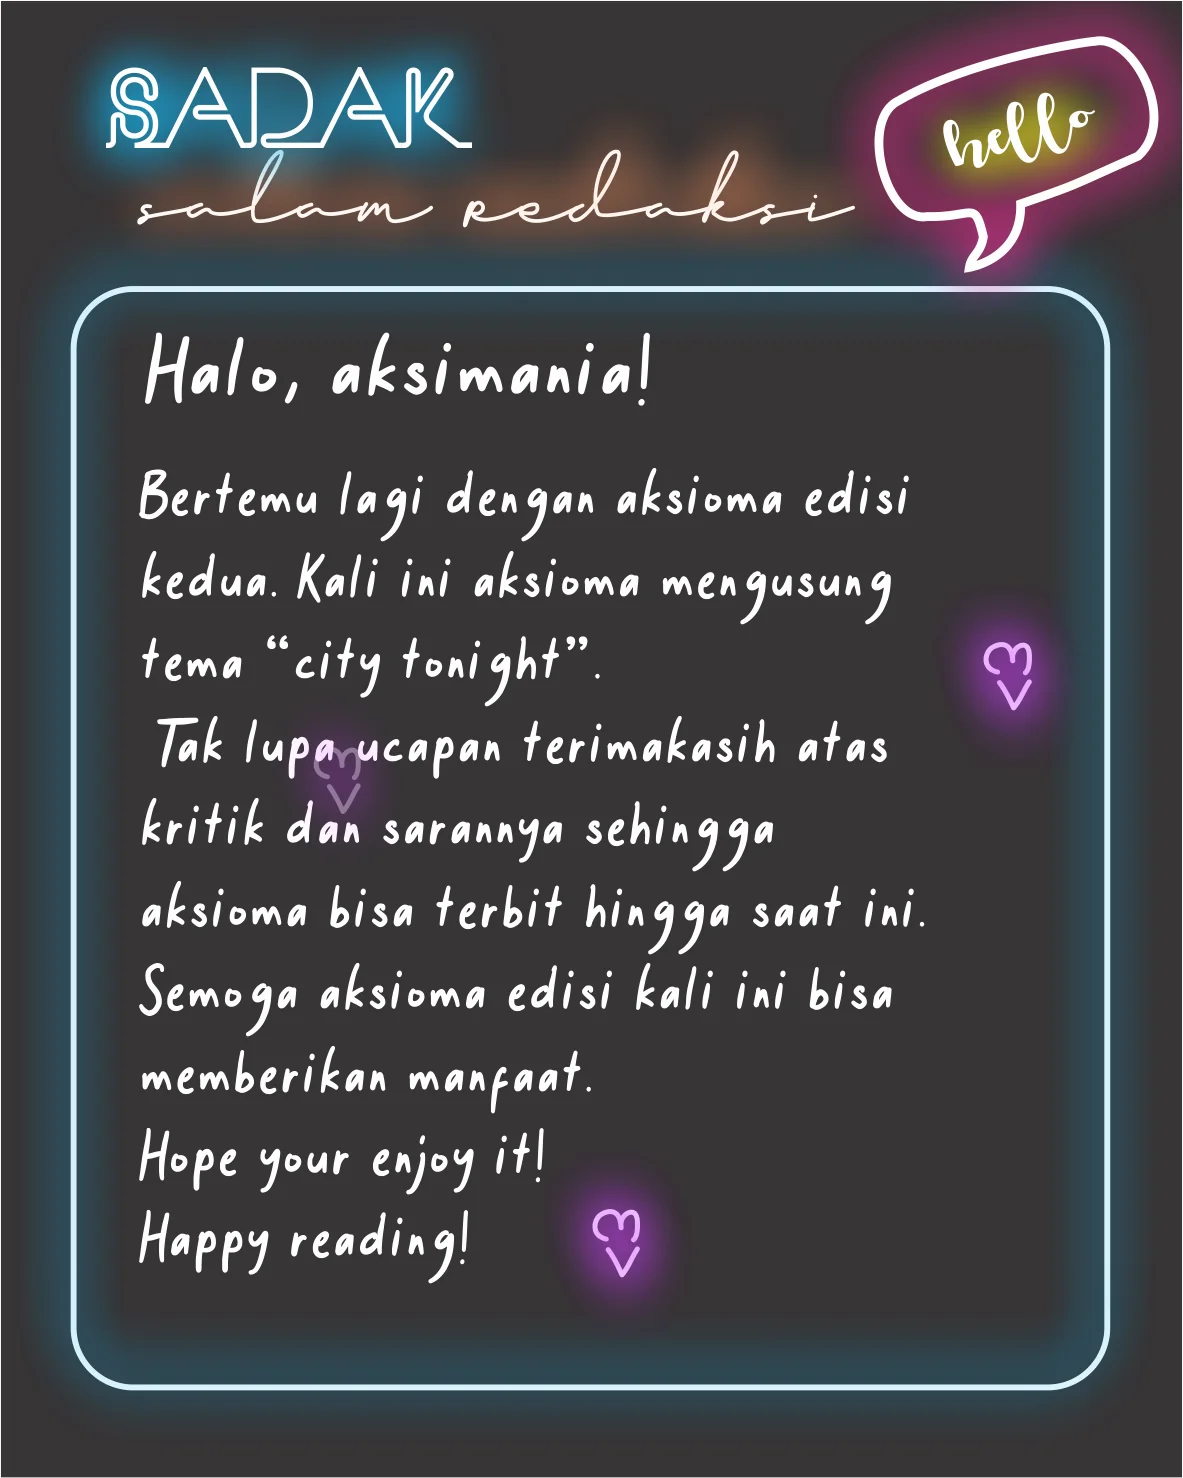 SADAK
salam redaksi
hello
Halo, aksimania!
Bertemu lagi dengan aksioma edisi
kedua. Kali ini aksioma mengusung
tema “city tonight”.
Tak lupa ucapan terimakasih atas
kritik dan sarannya sehingga
aksioma bisa terbit hingga saat ini.
Semoga aksioma edisi kali ini bisa
memberikan manfaat.
Hope your enjoy it!
Happy reading!